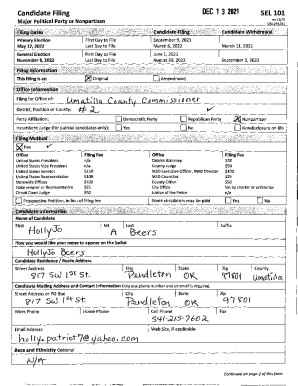 Candidate Filing
DEC 13 2021
SEL 101
Major Political Party or Nonpartisan
Filing Dates Candidate Filing Candidate Withdrawal
Primary Election First Day to File September 9, 2021
May 17, 2022 Last Day to File March 8, 2022 March 11, 2022
General Election First Day to File June 1, 2022
November 8, 2022 Last Day to File August 30, 2022 September 2, 2022
Filing Information
This filing is an Original Amendment
Office Information
Filing for Office of: Umatilla County Commissioner
District, Position or County: #2
Party Affiliation: Democratic Party Republican Party Nonpartisan
Incumbent Judge (for judicial candidates only) Yes No Nondisclosure on file
Filing Method
Fee
Office Filing Fee Office Filing Fee
United States President n/a District Attorney $50
United States Vice President n/a County Judge $50
United States Senator $150 MSD Executive Officer, Metro District $100
United States Representative $100 MSD Councilor $25
Statewide Offices $100 County Office $50
State Senator or Representative $25 City Office Set by charter or ordinance
Circuit Court Judge $50 Justice of the Peace n/a
Prospective Petition, in lieu of filing fee Some circulators may be paid Yes No
Candidate Information
Name of Candidate
First MI Last Suffix
HollyJo A Beers
How you would like your name to appear on the ballot
HollyJo Beers
Candidate Residence / Route Address
Street Address City State Zip County
817 SW 1st St. Pendleton OR 97801 Umatilla
Candidate Mailing Address and Contact Information Only one phone number and an email is required.
Street Address or PO Box City State Zip
817 SW 1st St. Pendleton OR 97801
Work Phone Home Phone Cell Phone Fax
541-215-7602
Email Address Web Site, if applicable
holly.patriot7@yahoo.com
Race and Ethnicity Optional
N/A
Continued on page 2 of this form